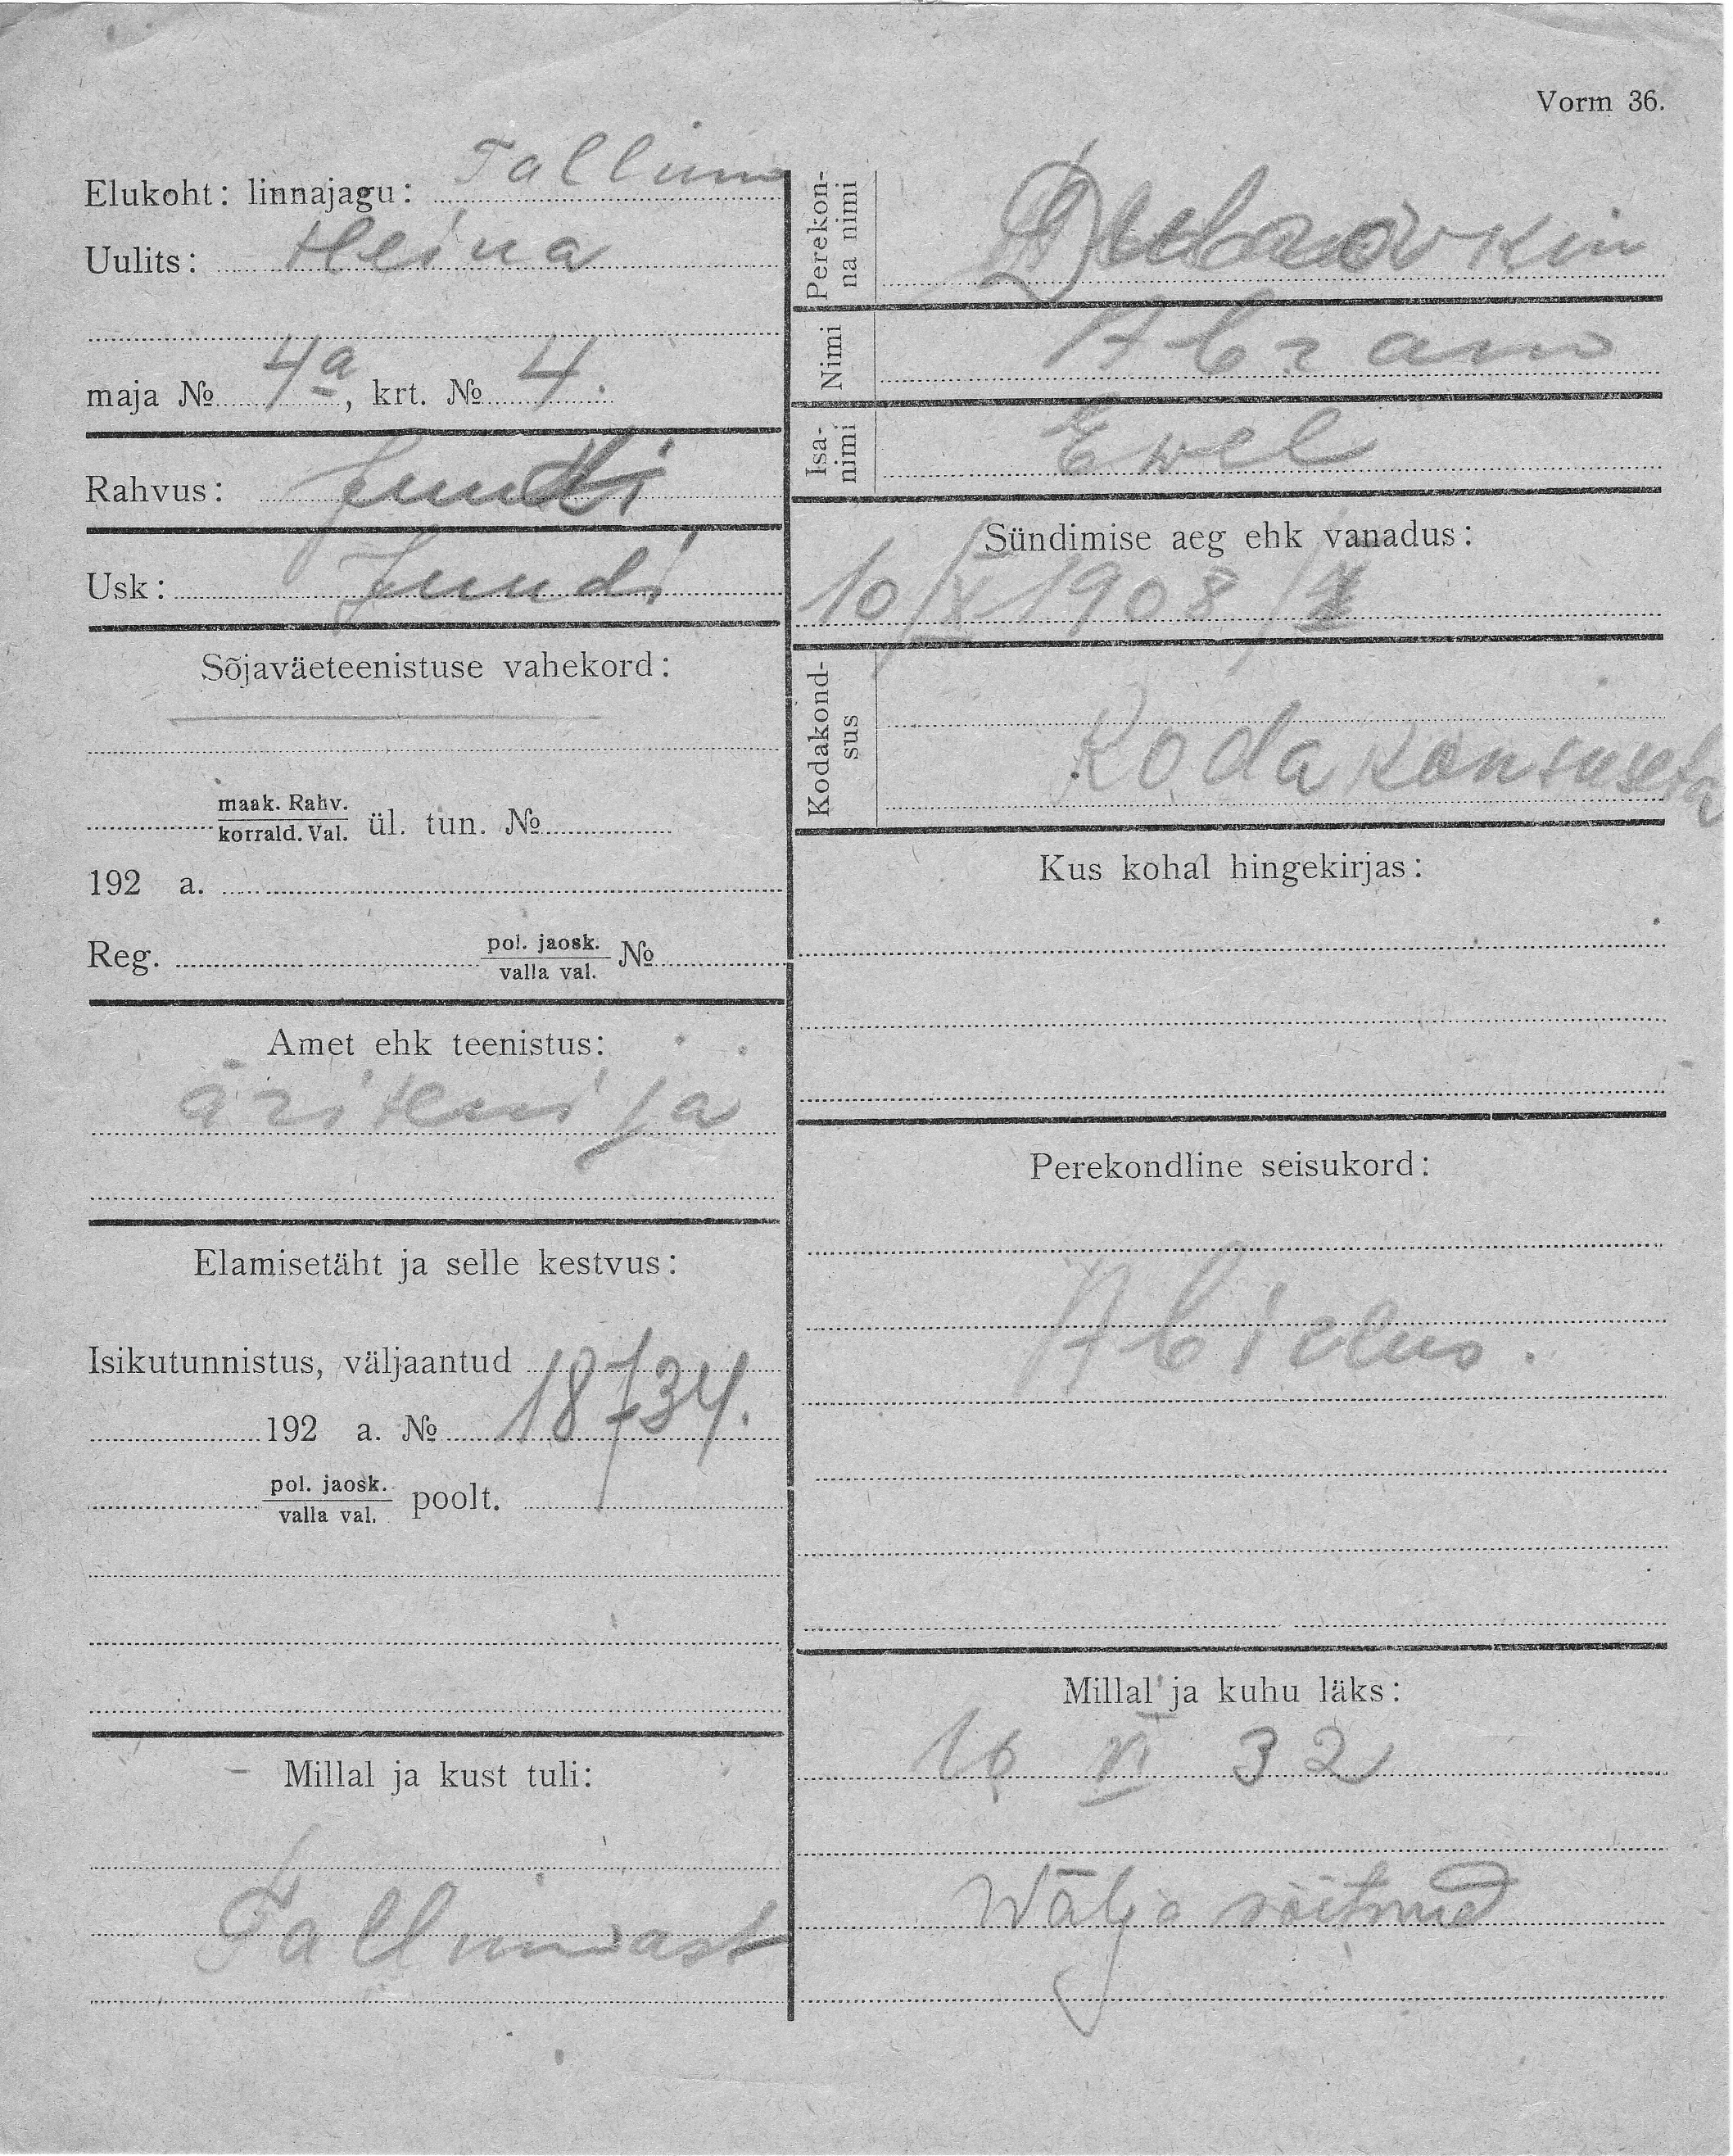 Vorm 36.
Elukoht: linnajagu: Tallinn
Uulits: Heina
maja № 4a, krt. № 4.
Rahvus: Juudi
Usk: Juudi
Sõjaväeteenistuse vahekord:
maak. Rahv.
korrald. Val. ül. tun. №
192 a.
Reg. pol. jaosk. №
valla val.
Amet ehk teenistus:
äriteenija
Elamisetäht ja selle kestvus:
Isikutunnistus, väljaantud
192 a. № 18734.
pol. jaosk. poolt.
valla val.
Millal ja kust tuli:
Tallinnast
Perekon-
na nimi
Nimi Abram
Isa-
nimi Ewel
Sündimise aeg ehk vanadus:
10/X 1908
Kodakond-
sus Kodakonsuseta
Kus kohal hingekirjas:
Perekondline seisukord:
Abielus.
Millal ja kuhu läks:
VI 32
Wälja sõitnud